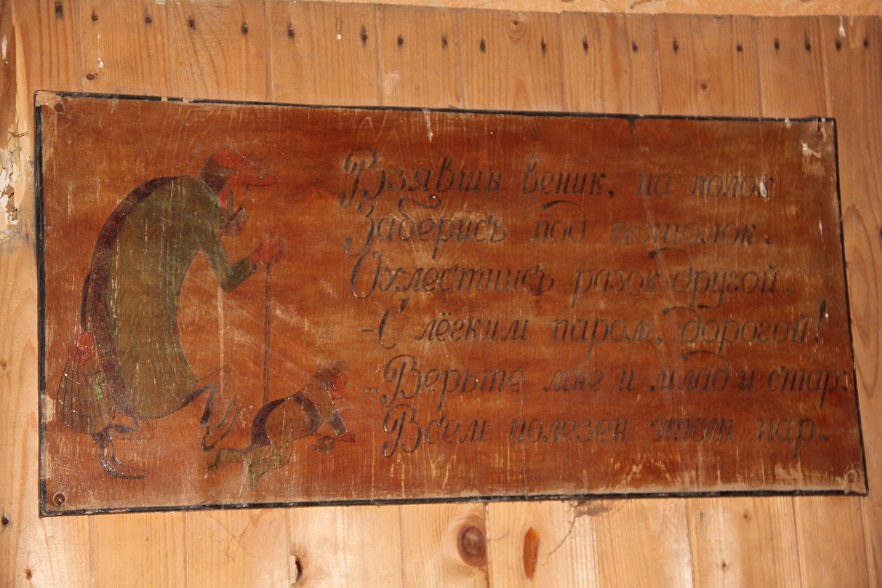 Взявши веник, на полок
Заберись под потолок.
Охлестнись разок-другой,
-С лёгким паром, дорогой!
Верьте мне и млад и стар:
Всем полезен этот пар.